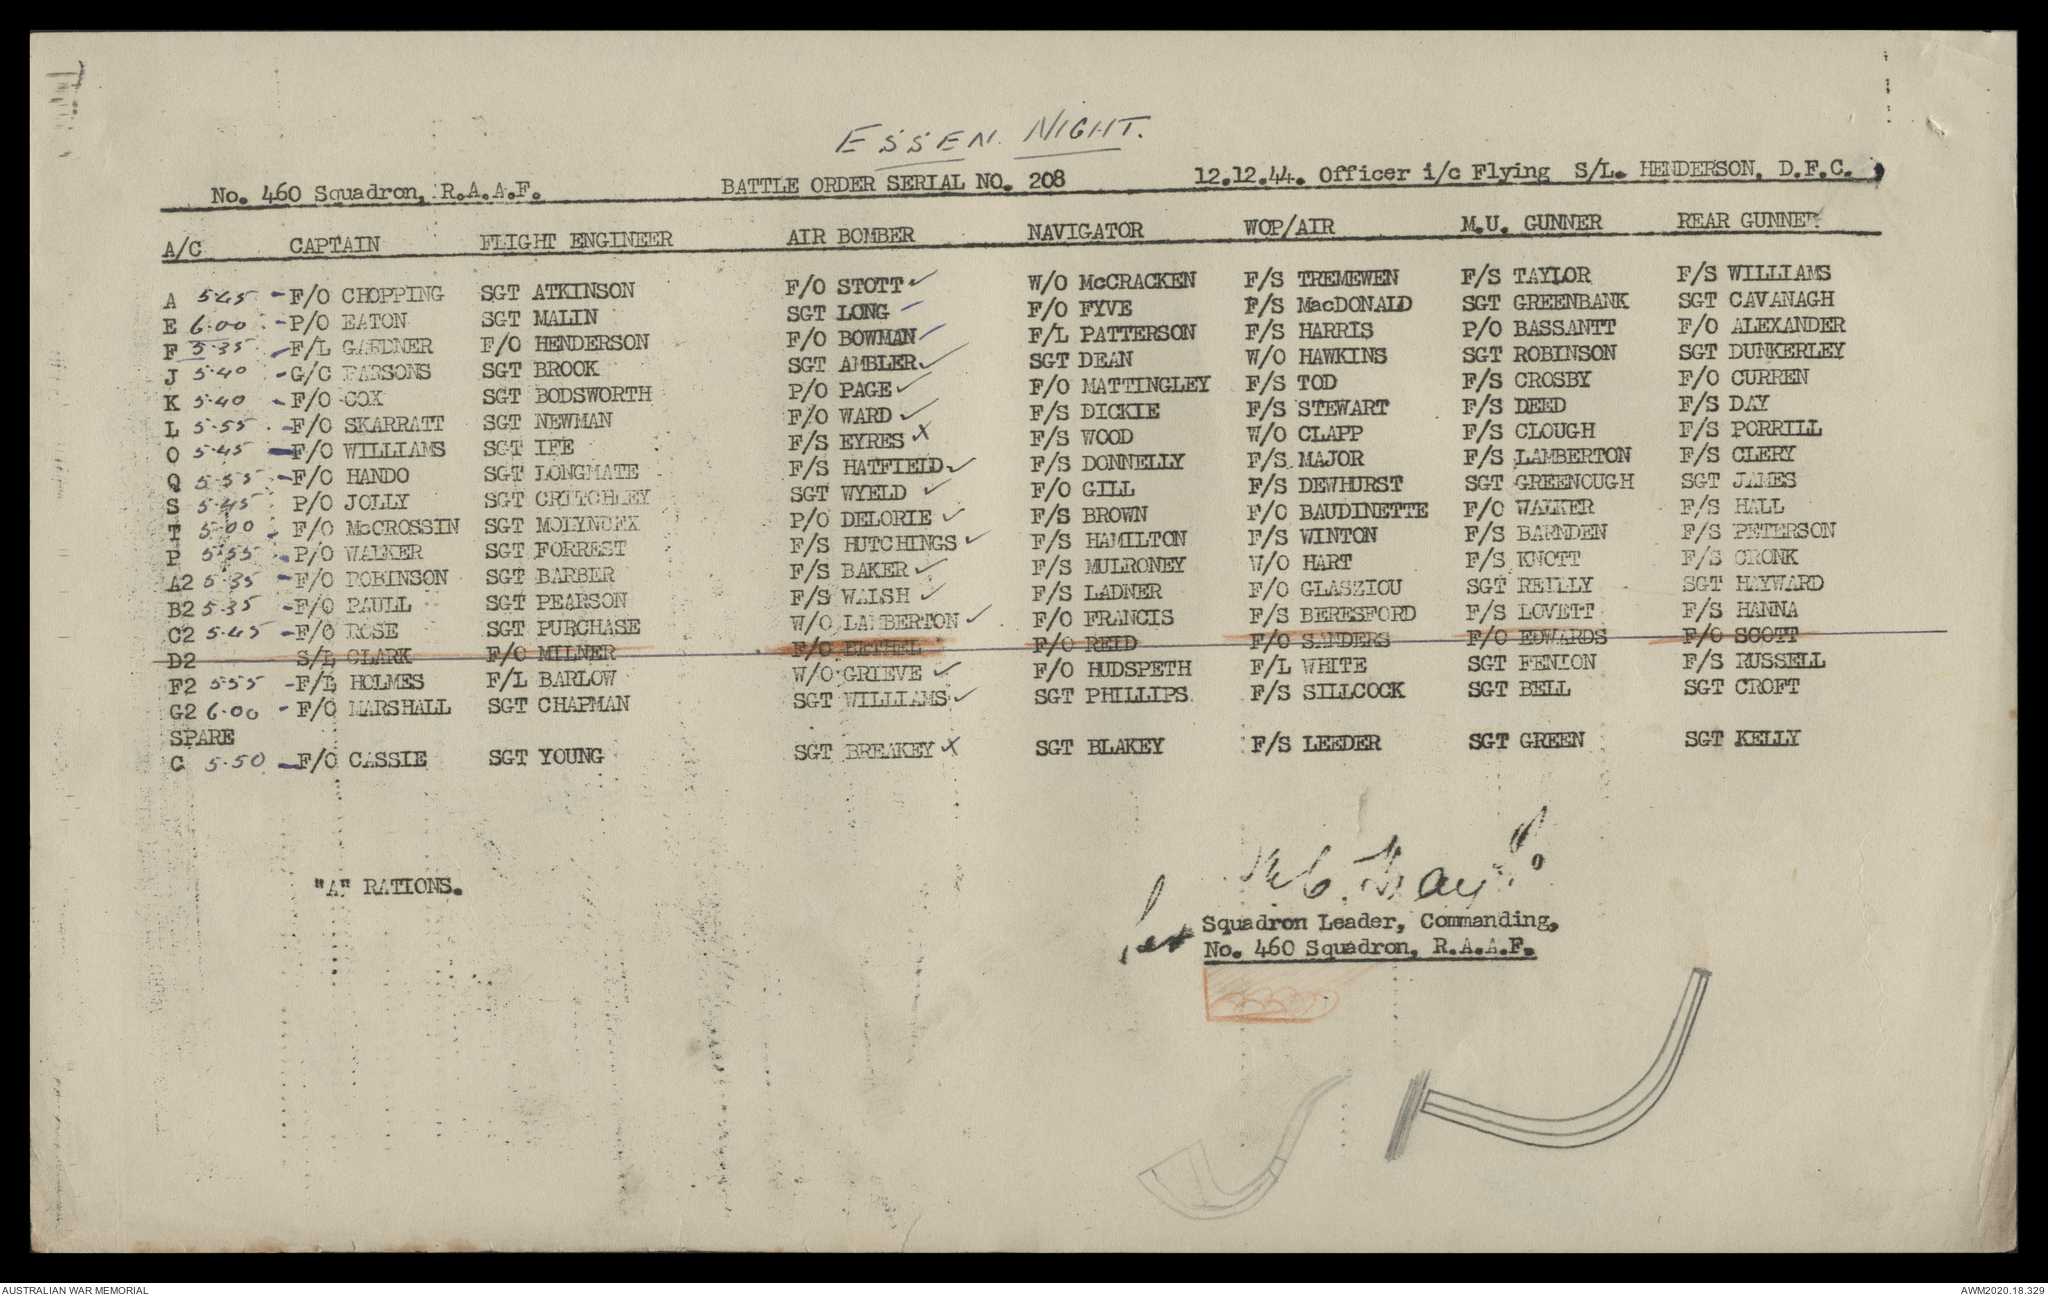 ESSEN NIGHT.
No. 460 Squadron, R.A.A.F. BATTLE ORDER SERIAL NO. 208 12.12.44. Officer i/c Flying S/L. HENDERSON, D.F.C.
A/C CAPTAIN FLIGHT ENGINEER AIR BOMBER NAVIGATOR WOP/AIR M.U. GUNNER REAR GUNNER
A 5.45 - F/O CHOPPING SGT ATKINSON F/O STOTT ✓ W/O McCRACKEN F/S TREMEWEN F/S TAYLOR F/S WILLIAMS
E 6.00 - P/O EATON SGT MALIN SGT LONG F/O FYVE F/S MacDONALD SGT GREENBANK SGT CAVANAGH
F 5.35 - F/L GARDNER F/O HENDERSON F/O BOWMAN F/L PATTERSON F/S HARRIS P/O BASSANTT F/O ALEXANDER
J 5.40 - G/C PARSONS SGT BROOK SGT AMBLER ✓ SGT DEAN W/O HAWKINS SGT ROBINSON SGT DUNKERLEY
K 5.40 - F/O COX SGT BODSWORTH P/O PAGE ✓ F/O MATTINGLEY F/S TOD F/S CROSBY F/O CURREN
L 5.55 - F/O SKARRATT SGT NEWMAN F/O WARD ✓ F/S DICKIE F/S STEWART F/S DEED F/S DAY
O 5.45 - F/O WILLIAMS SGT IFE F/S EYRES X F/S WOOD W/O CLAPP F/S CLOUGH F/S PORRILL
Q 5.55 - F/O HANDO SGT LONGMATE F/S HATFIELD ✓ F/S DONNELLY F/S MAJOR F/S LAMBERTON F/S CLERY
S 5.45 P/O JOLLY SGT CRITCHLEY SGT WYELD ✓ F/O GILL F/S DEWHURST SGT GREENOUGH SGT JAMES
T 5.00 - F/O McCROSSIN SGT MOLYNDEX P/O DELORIE ✓ F/S BROWN F/O BAUDINETTE F/O WALKER F/S HALL
P 5.55 - P/O WALKER SGT FORREST F/S HUTCHINGS ✓ F/S HAMILTON F/S WINTON F/S BARNDEN F/S PETERSON
A2 5.35 - F/O ROBINSON SGT BARBER F/S BAKER ✓ F/S MULRONEY W/O HART F/S KNOTT F/S CRONK
B2 5.35 - F/O PAULL SGT PEARSON F/S WALSH ✓ F/S LADNER F/O GLASZIOU SGT REILLY SGT HAYWARD
C2 5.45 - F/O ROSE SGT PURCHASE W/O LAMBERTON ✓ F/O FRANCIS F/S BERESFORD F/S LOVETT F/S HANNA
D2 S/L CLARK F/O MILNER F/O BETHEL F/O REID F/O SANDERS F/O EDWARDS F/O SCOTT
F2 5.55 - F/L HOLMES F/L BARLOW W/O GRIEVE ✓ F/O HUDSPETH F/L WHITE SGT FENION F/S RUSSELL
G2 6.00 - F/O MARSHALL SGT CHAPMAN SGT WILLIAMS ✓ SGT PHILLIPS F/S SILLCOCK SGT BELL SGT CROFT
SPARE
C 5.50 - F/O CASSIE SGT YOUNG SGT BREAKEY X SGT BLAKEY F/S LEEDER SGT GREEN SGT KELLY
"A" RATIONS.
for Squadron Leader, Commanding,
No. 460 Squadron, R.A.A.F.
AUSTRALIAN WAR MEMORIAL AWM2020.18.329